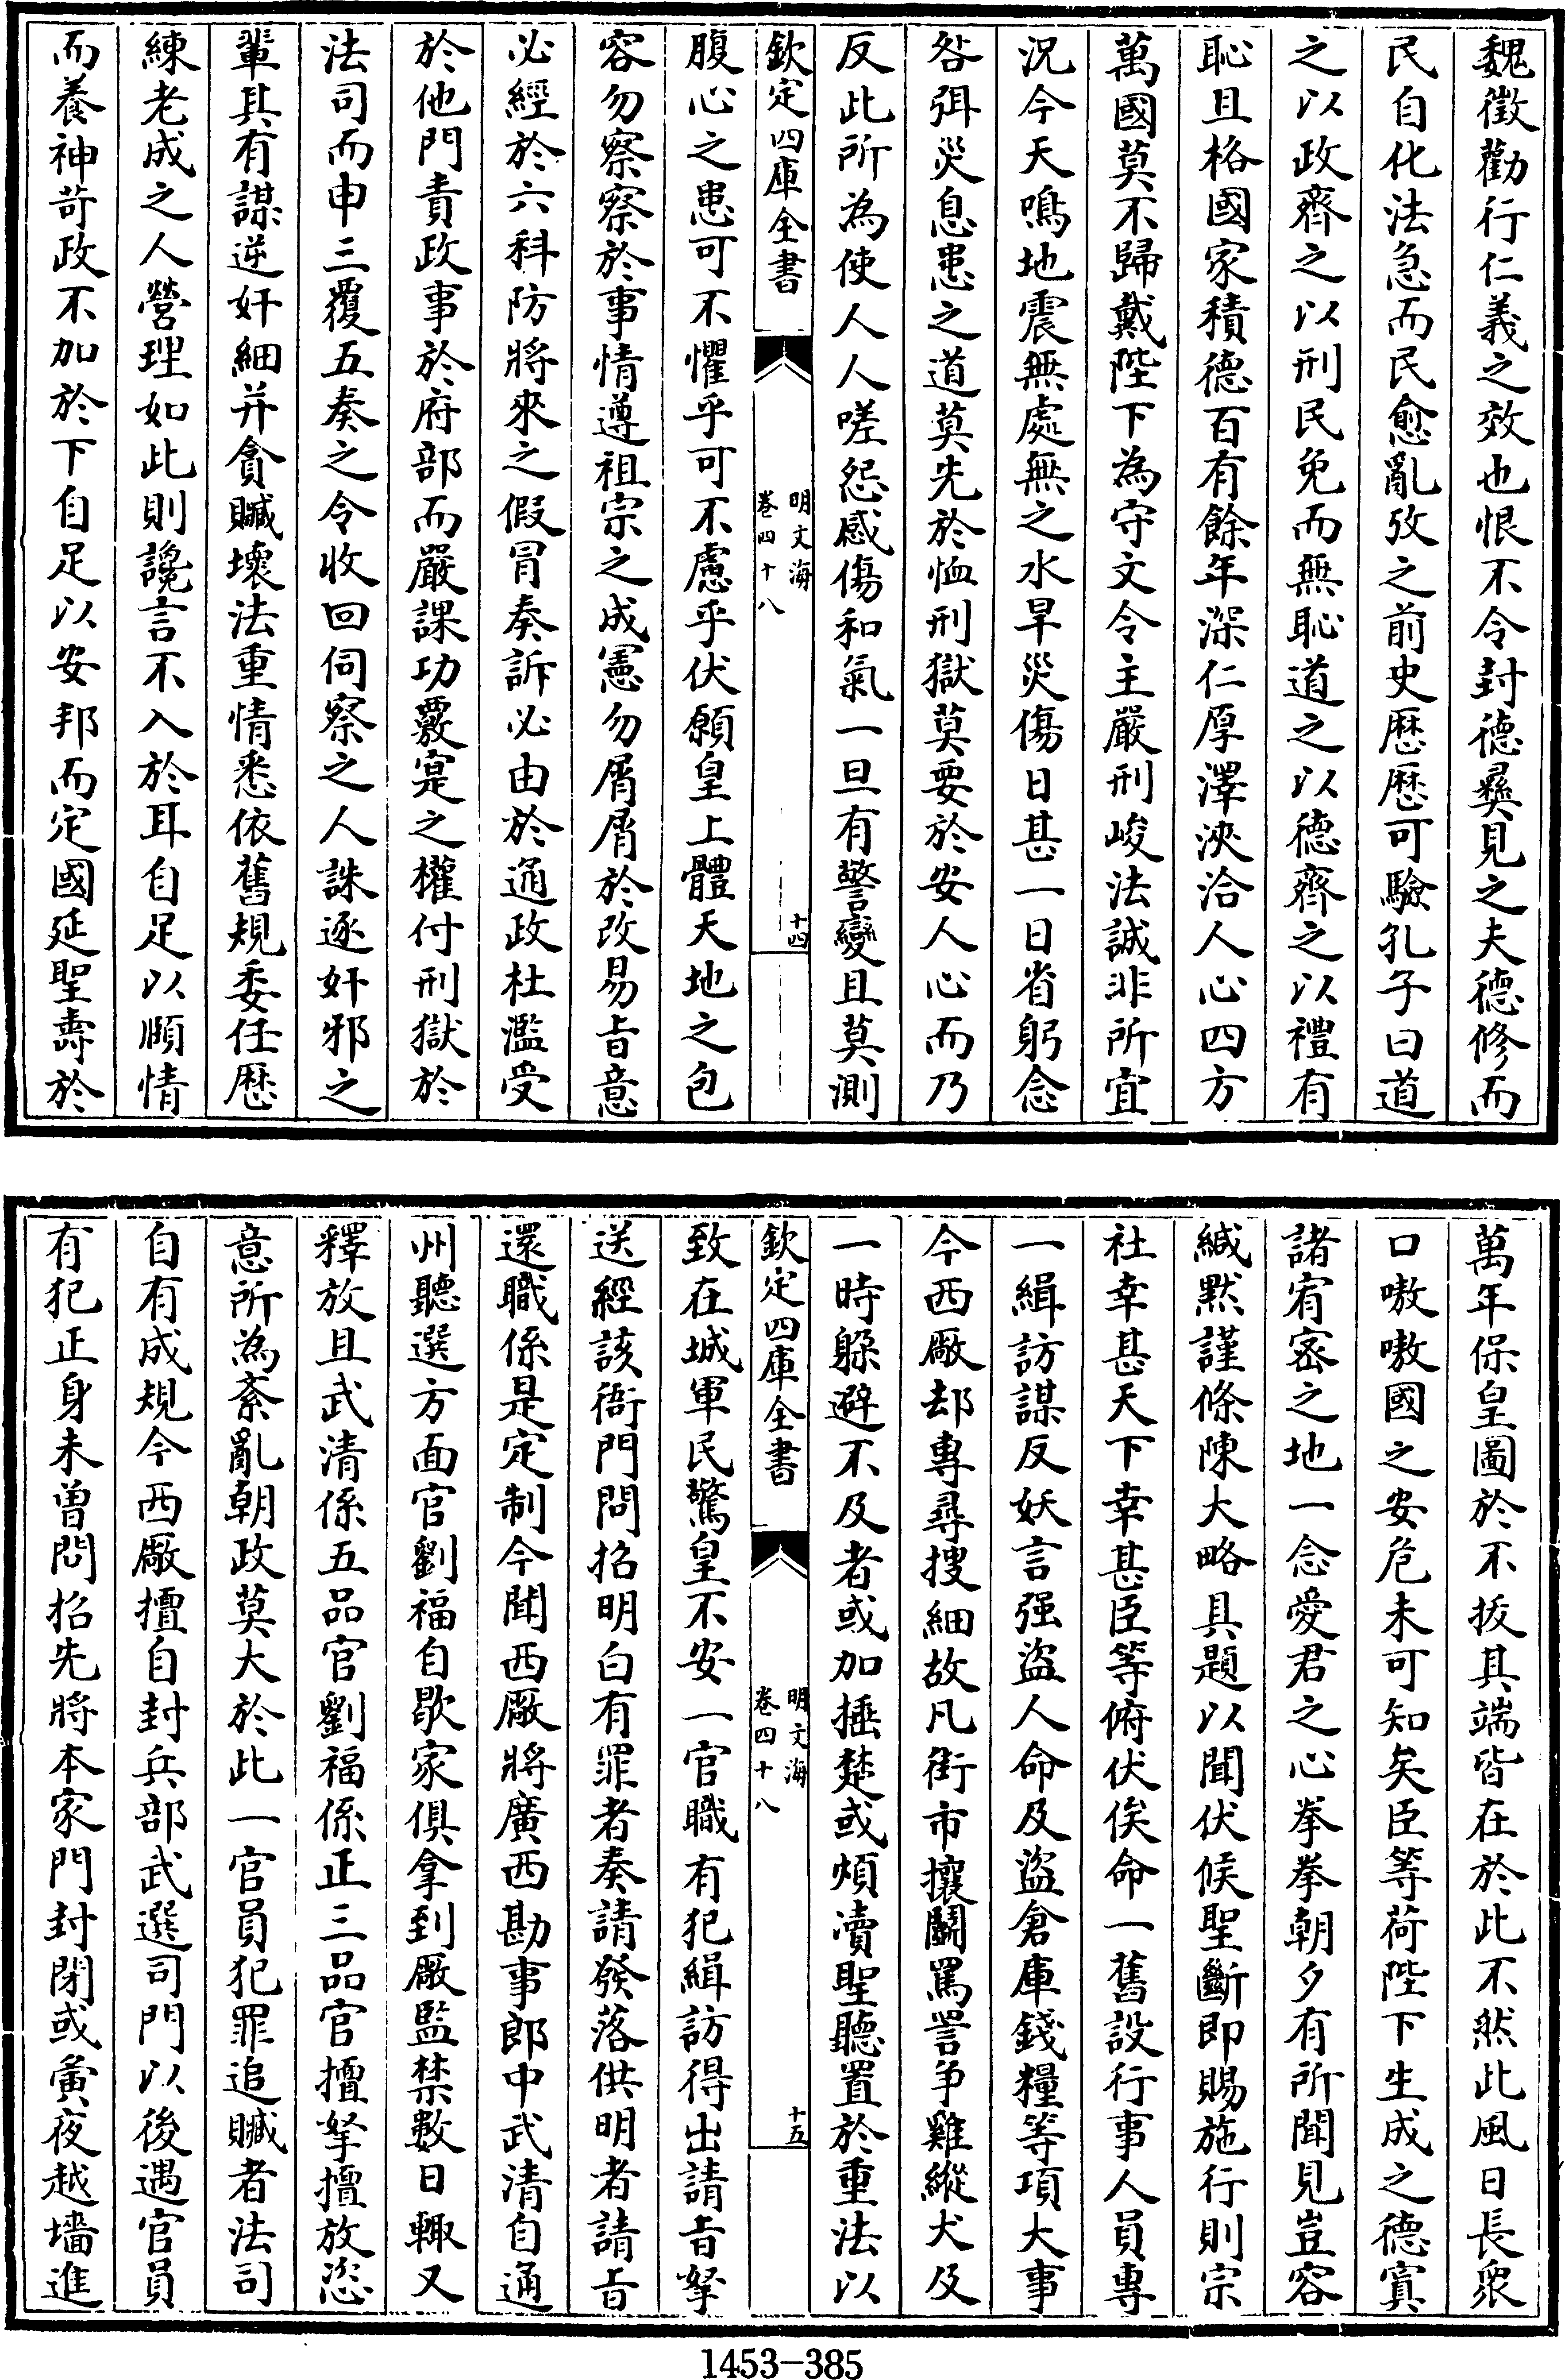 魏徵勸行仁義之效也恨不令封德彞見之夫德修而
民自化法急而民愈亂攷之前史歴歴可驗孔子曰道
之以政齊之以刑民免而無恥道之以德齊之以禮有
恥且格國家積德百有餘年深仁厚澤浹洽人心四方
萬國莫不歸戴陛下為守文令主嚴刑峻法誠非所宜
況今天鳴地震無處無之水旱災傷日甚一日省躬念
咎弭災息患之道莫先於恤刑獄莫要於安人心而乃
反此所為使人人嗟怨感傷和氣一旦有警變且莫測
欽定四庫全書
明文海
卷四十八
十四
腹心之患可不懼乎可不慮乎伏願皇上體天地之包
容勿察察於事情遵祖宗之成憲勿屑屑於改易旨意
必經於六科防將來之假冐奏訴必由於通政杜濫受
於他門責政事於府部而嚴課功覈寔之權付刑獄於
法司而申三覆五奏之令收回伺察之人誅逐奸邪之
輩其有謀逆奸細并貪贓壞法重情悉依舊規委任歴
練老成之人營理如此則讒言不入於耳自足以頤情
而養神苛政不加於下自足以安邦而定國延聖壽於
萬年保皇圖於不拔其端皆在於此不然此風日長衆
口嗷嗷國之安危未可知矣臣等荷陛下生成之德寘
諸宥密之地一念愛君之心拳拳朝夕有所聞見豈容
緘默謹條陳大略具題以聞伏候聖斷即賜施行則宗
社幸甚天下幸甚臣等俯伏俟命一舊設行事人員專
一緝訪謀反妖言强盜人命及盜倉庫錢糧等項大事
今西厰却專尋搜細故凡街市攘鬭罵詈爭雞縱犬及
一時躲避不及者或加捶楚或煩瀆聖聽置於重法以
欽定四庫全書
明文海
卷四十八
十五
致在城軍民驚皇不安一官職有犯緝訪得出請旨拏
送經該衙門問招明白有罪者奏請發落供明者請旨
還職係是定制今聞西厰將廣西勘事郎中武清自通
州聽選方面官劉福自歇家俱拿到厰監禁數日輙又
釋放且武清係五品官劉福係正三品官擅拏擅放恣
意所為紊亂朝政莫大於此一官員犯罪追贓者法司
自有成規今西厰擅自封兵部武選司門以後遇官員
有犯正身未曾問招先將本家門封閉或夤夜越墻進
1453-385